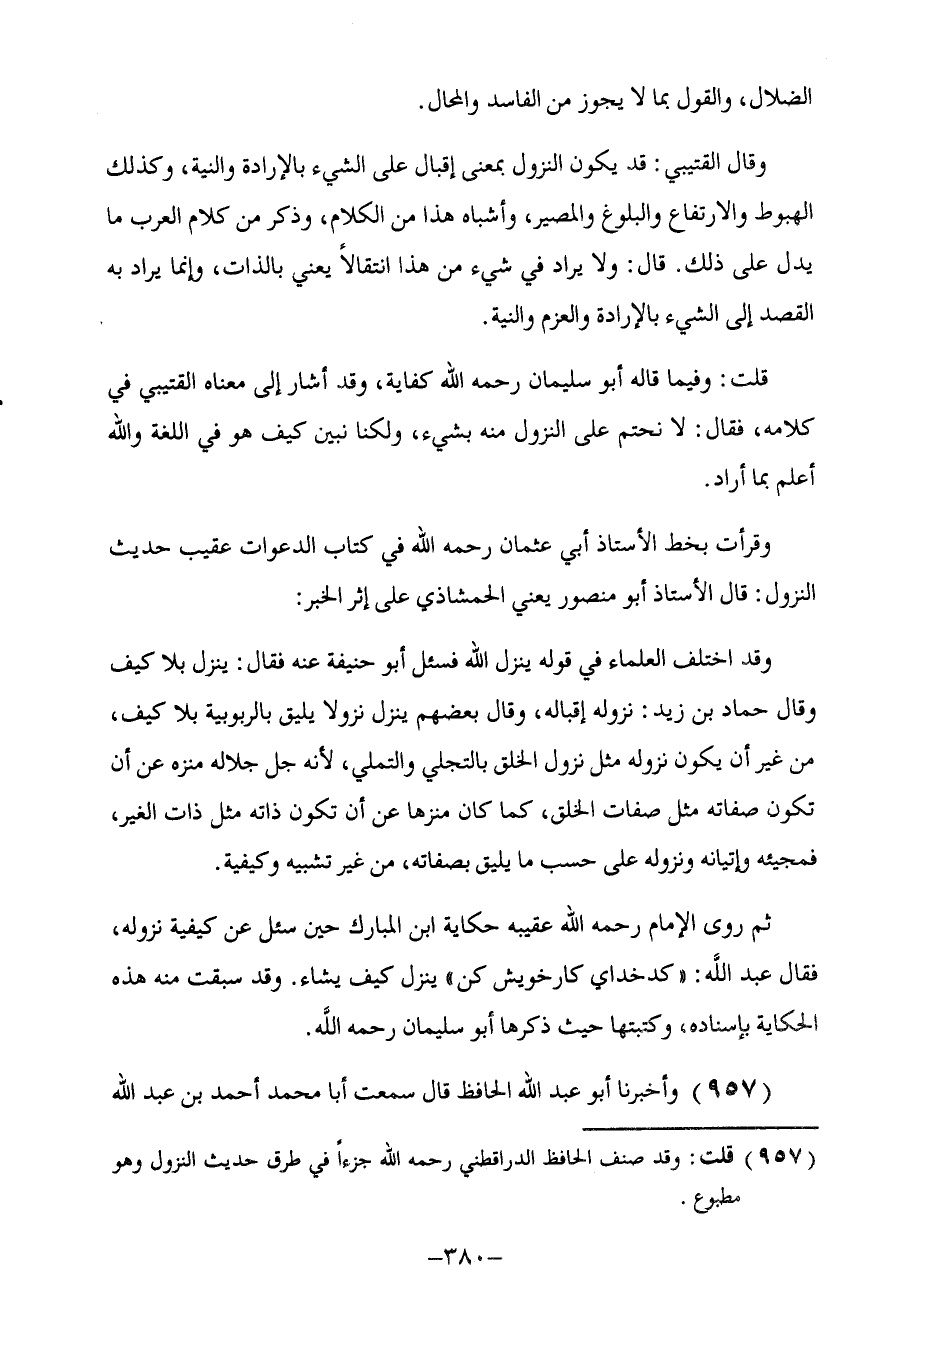 الضلال، والقول بما لا يجوز من الفاسد والمحال.
وقال القتيبي: قد يكون النزول بمعنى إقبال على الشيء بالإرادة والنية، وكذلك
الهبوط والارتفاع والبلوغ والمصير، وأشباه هذا من الكلام، وذكر من كلام العرب ما
يدل على ذلك. قال: ولا يراد في شيء من هذا انتقالاً يعني بالذات، وإنما يراد به
القصد إلى الشيء بالإرادة والعزم والنية.
قلت: وفيما قاله أبو سليمان رحمه الله كفاية، وقد أشار إلى معناه القتيبي في
كلامه، فقال: لا نحتم على النزول منه بشيء، ولكنا نبين كيف هو في اللغة والله
أعلم بما أراد.
وقرأت بخط الأستاذ أبي عثمان رحمه الله في كتاب الدعوات عقيب حديث
النزول: قال الأستاذ أبو منصور يعني الحمشاذي على إثر الخبر:
وقد اختلف العلماء في قوله ينزل الله فسئل أبو حنيفة عنه فقال: ينزل بلا كيف
وقال حماد بن زيد: نزوله إقباله، وقال بعضهم ينزل نزولا يليق بالربوبية بلا كيف،
من غير أن يكون نزوله مثل نزول الخلق بالتجلي والتملي، لأنه جل جلاله منزه عن أن
تكون صفاته مثل صفات الخلق، كما كان منزها عن أن تكون ذاته مثل ذات الغير،
فمجيئه وإتيانه ونزوله على حسب ما يليق بصفاته، من غير تشبيه وكيفية.
ثم روى الإمام رحمه الله عقيبه حكاية ابن المبارك حين سئل عن كيفية نزوله،
فقال عبد اللَّه: «كدخداي كارخويش كن» ينزل كيف يشاء. وقد سبقت منه هذه
الحكاية بإسناده، وكتبتها حيث ذكرها أبو سليمان رحمه اللَّه.
(٩٥٧) وأخبرنا أبو عبد الله الحافظ قال سمعت أبا محمد أحمد بن عبد الله
(٩٥٧) قلت: وقد صنف الحافظ الدراقطني رحمه الله جزءاً في طرق حديث النزول وهو
مطبوع.
–٣٨٠–